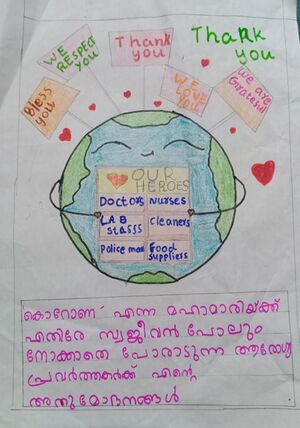 WE
RESPECT
YOU
Thank
you
Thank
you
Bless
you
WE
LOVE
YOU
We are
Grateful
OUR
HEROES
Doctors Nurses
LAB
staffs
cleaners
Police man
Food
suppliers
കൊറോണ എന്ന മഹാമാരിയ്ക്ക്
എതിരേ സ്വജീവൻ പോലും
നോക്കാതെ പോരാടുന്ന ആരോഗ്യ
പ്രവർത്തകർക്ക് എന്റെ
അനുമോദനങ്ങൾ